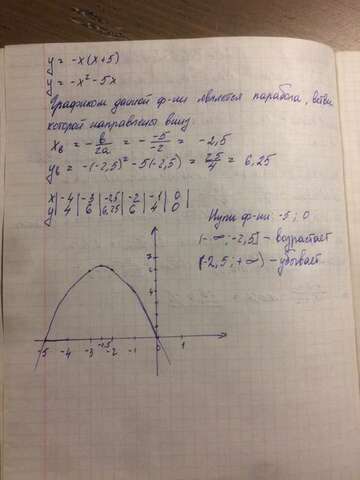 y = -x(x+5)
y = -x² - 5x
Графиком данной ф-ии является парабола, ветви
которой направлены вниз
xв = -в/2a = - -5/-2 = -2,5
yв = -(-2,5)² - 5(-2,5) = 25/4 = 6,25
x | -4 | -3 | -2,5 | -2 | -1 | 0 |
y | 4 | 6 | 6,25 | 6 | 4 | 0 |
Нули ф-ии: -5; 0
(-∞; -2,5] - возрастает
(-2,5; +∞) - убывает
-5 -4 -3 -2,5 -2 -1 0 1